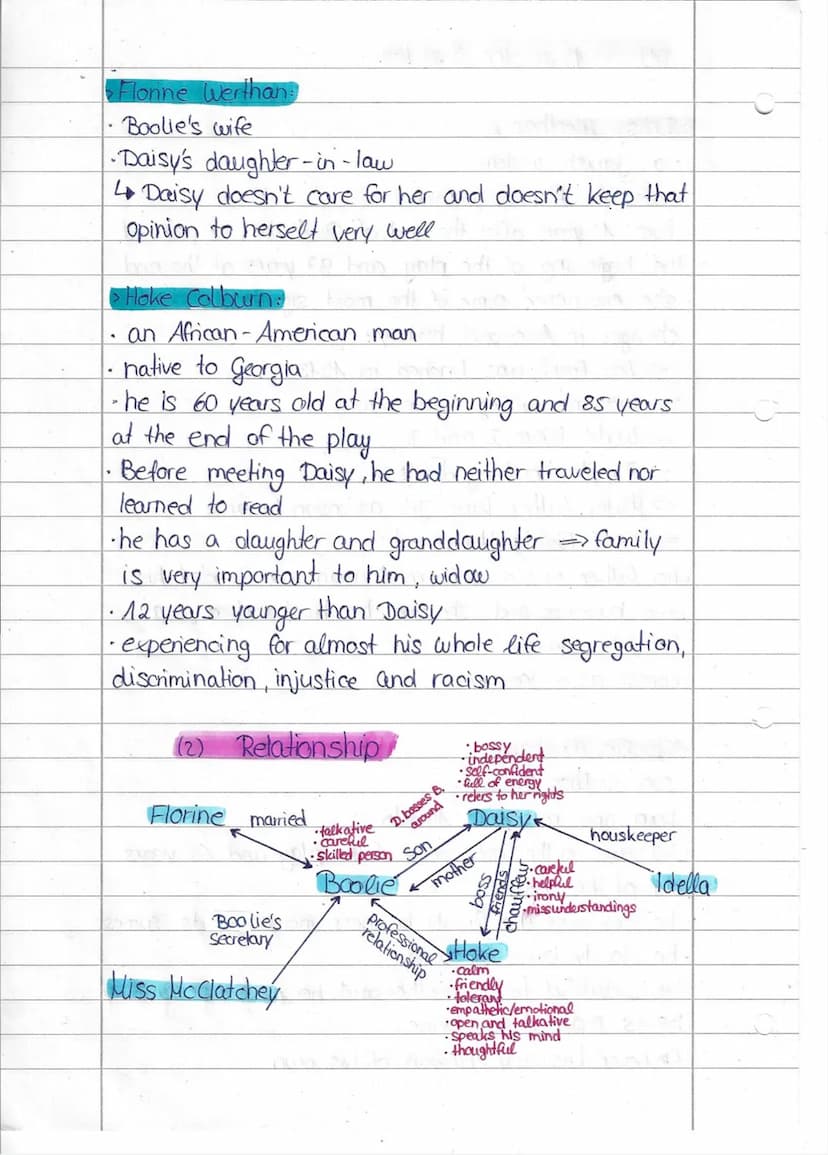 > Florine Werthan:
· Boolie's wife
· Daisy's daughter-in-law
↳ Daisy doesn't care for her and doesn't keep that
opinion to herself very well
> Hoke Colburn:
· an African-American man
· native to Georgia
· he is 60 years old at the beginning and 85 years
at the end of the play
· Before meeting Daisy, he had neither traveled nor
learned to read
· he has a daughter and granddaughter ⇒ family
is very important to him, widow
· 12 years younger than Daisy
· experiencing for almost his whole life segregation,
discrimination, injustice and racism
(2) Relationship
· bossy
· independent
· self-confident
· full of energy
· refers to her rights
Daisy
D. bosses B.
around
Florine
married
· talkative
· careful
· skilled person
Boolie
Son
mother
houskeeper
Idella
boss
friends
chauffeur
· careful
· helpful
· irony
· missunderstandings
Boolie's
secretary
professional
relationship
Miss McClatchey
Hoke
· calm
· friendly
· tolerant
· empathetic/emotional
· open and talkative
· speaks his mind
· thoughtful